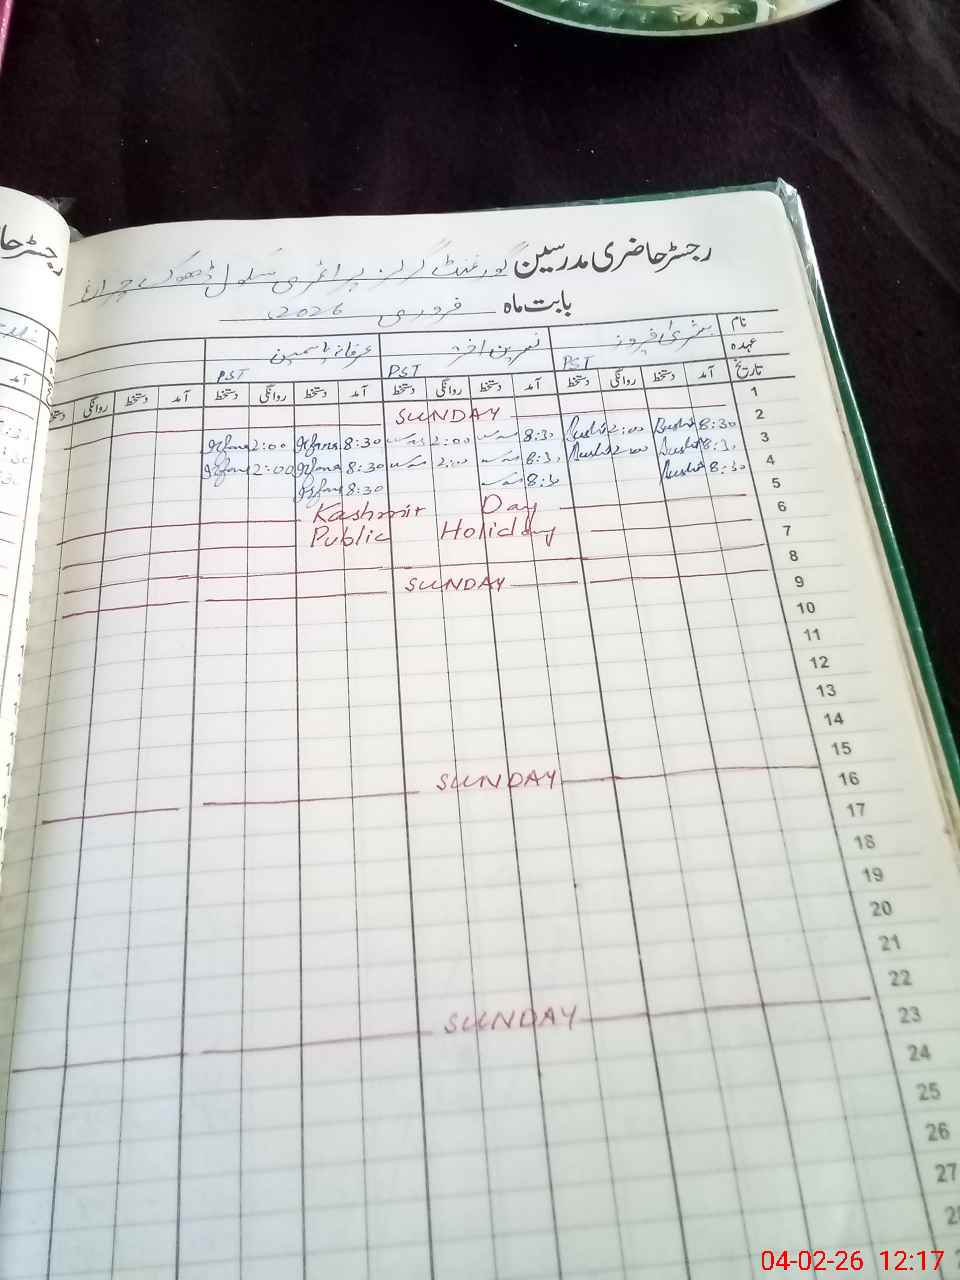 رجسٹر حاضری مدرسین گورنمنٹ گرلز پرائمری سکول ڈھوک چراغ
بابت ماہ فروری 2026ء
نام بشریٰ افروز نسرین اختر عرفانہ یاسمین
عہدہ PST PST PST
تاریخ آمد دستخط روانگی دستخط آمد دستخط روانگی دستخط آمد دستخط روانگی دستخط آمد دستخط روانگی دستخط
1 SUNDAY
2 8:30 2:00 8:30 2:00 8:30 Irfana 2:00 Irfana
3 8:30 2:00 8:30 2:00 8:30 Irfana 2:00 Irfana
4 8:30 8:30 8:30 Irfana
5 Kashmir Day
6 Public Holiday
7
8 SUNDAY
9
10
11
12
13
14
15 SUNDAY
16
17
18
19
20
21
22 SUNDAY
23
24
25
26
27
04-02-26 12:17